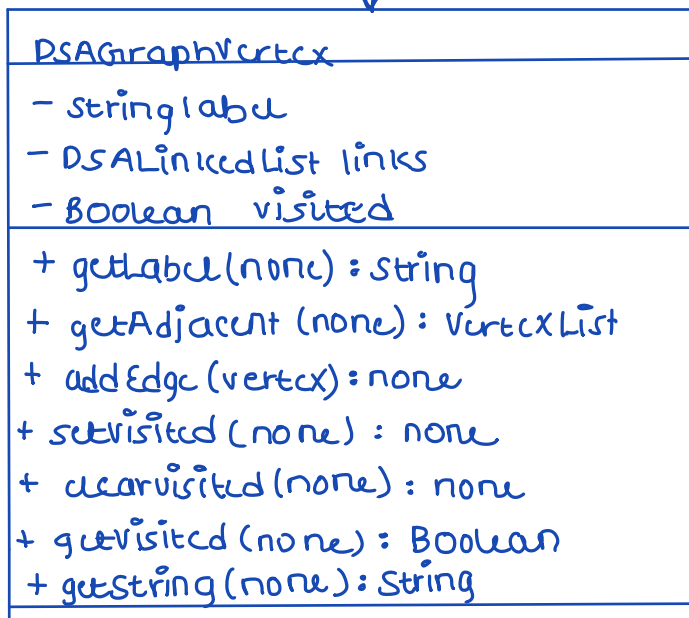 DSAGraphVertex
- String label
- DSALinkedList links
- Boolean visited
+ getLabel(none) : String
+ getAdjacent (none) : VertexList
+ addEdge (vertex) : none
+ setvisited (none) : none
+ clearvisited (none) : none
+ getvisited (none) : Boolean
+ getString (none) : String